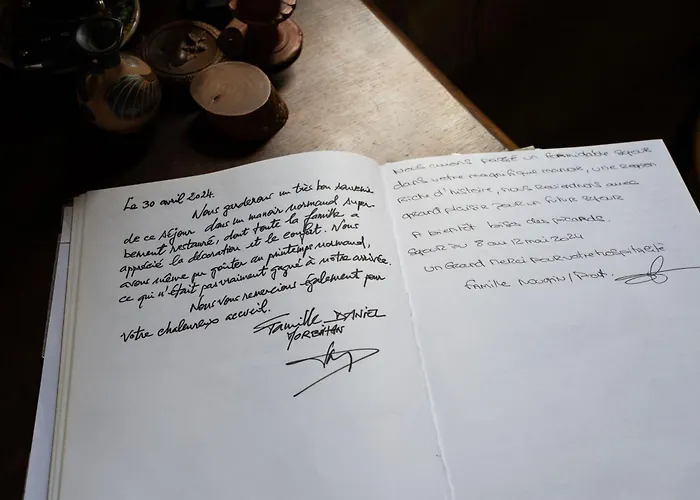 Le 30 avril 2024.
Nous garderons un très bon souvenir
de ce séjour dans un manoir normand super-
bement restauré, dont toute la famille a
apprécié la décoration et le confort. Nous
avons même pu goûter au printemps normand,
ce qui n'était pas vraiment gagné à notre arrivée.
Nous vous remercions également pour
votre chaleureux accueil.
Famille DANIEL
MORBIHAN
Nous avons passé un formidable séjour
dans votre magnifique manoir, une region
riche d'histoire, nous reviendrons avec
grand plaisir pour un futur séjour
A bientôt
des picards.
Séjour du 8 au 12 mai 2024
un Grand Merci pour votre hospitalité
Famille